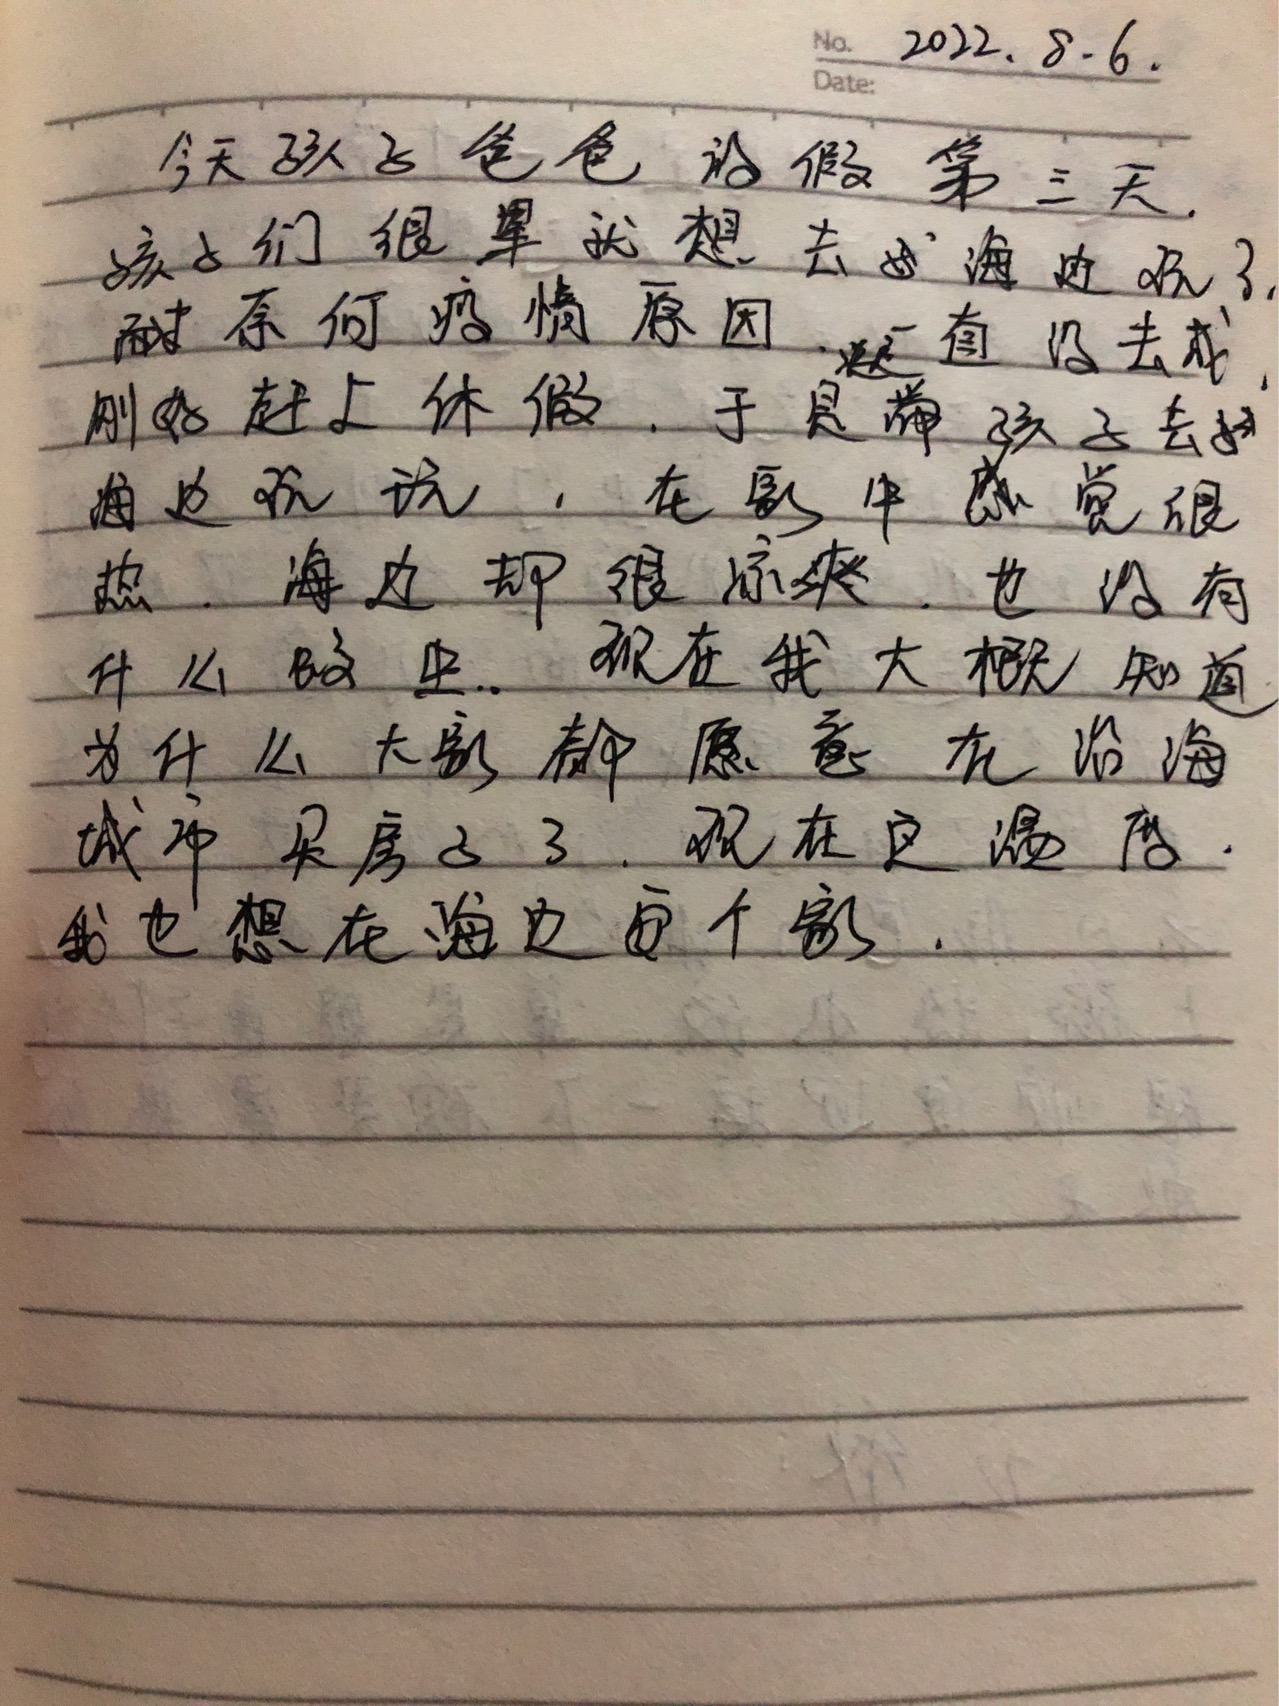 No. 2022.8.6.
Date:
今天孩子爸爸放假第三天.
孩子们很早就想去海边玩了,
耐奈何疫情原因.一直没去成,
刚好赶上休假.于是带孩子去
海边玩玩,在家中感觉很
热.海边却很凉爽.也没有
什么蚊虫..现在我大概知道
为什么大家都愿意在沿海
城市买房子了.现在这温度.
我也想在海边有个家.